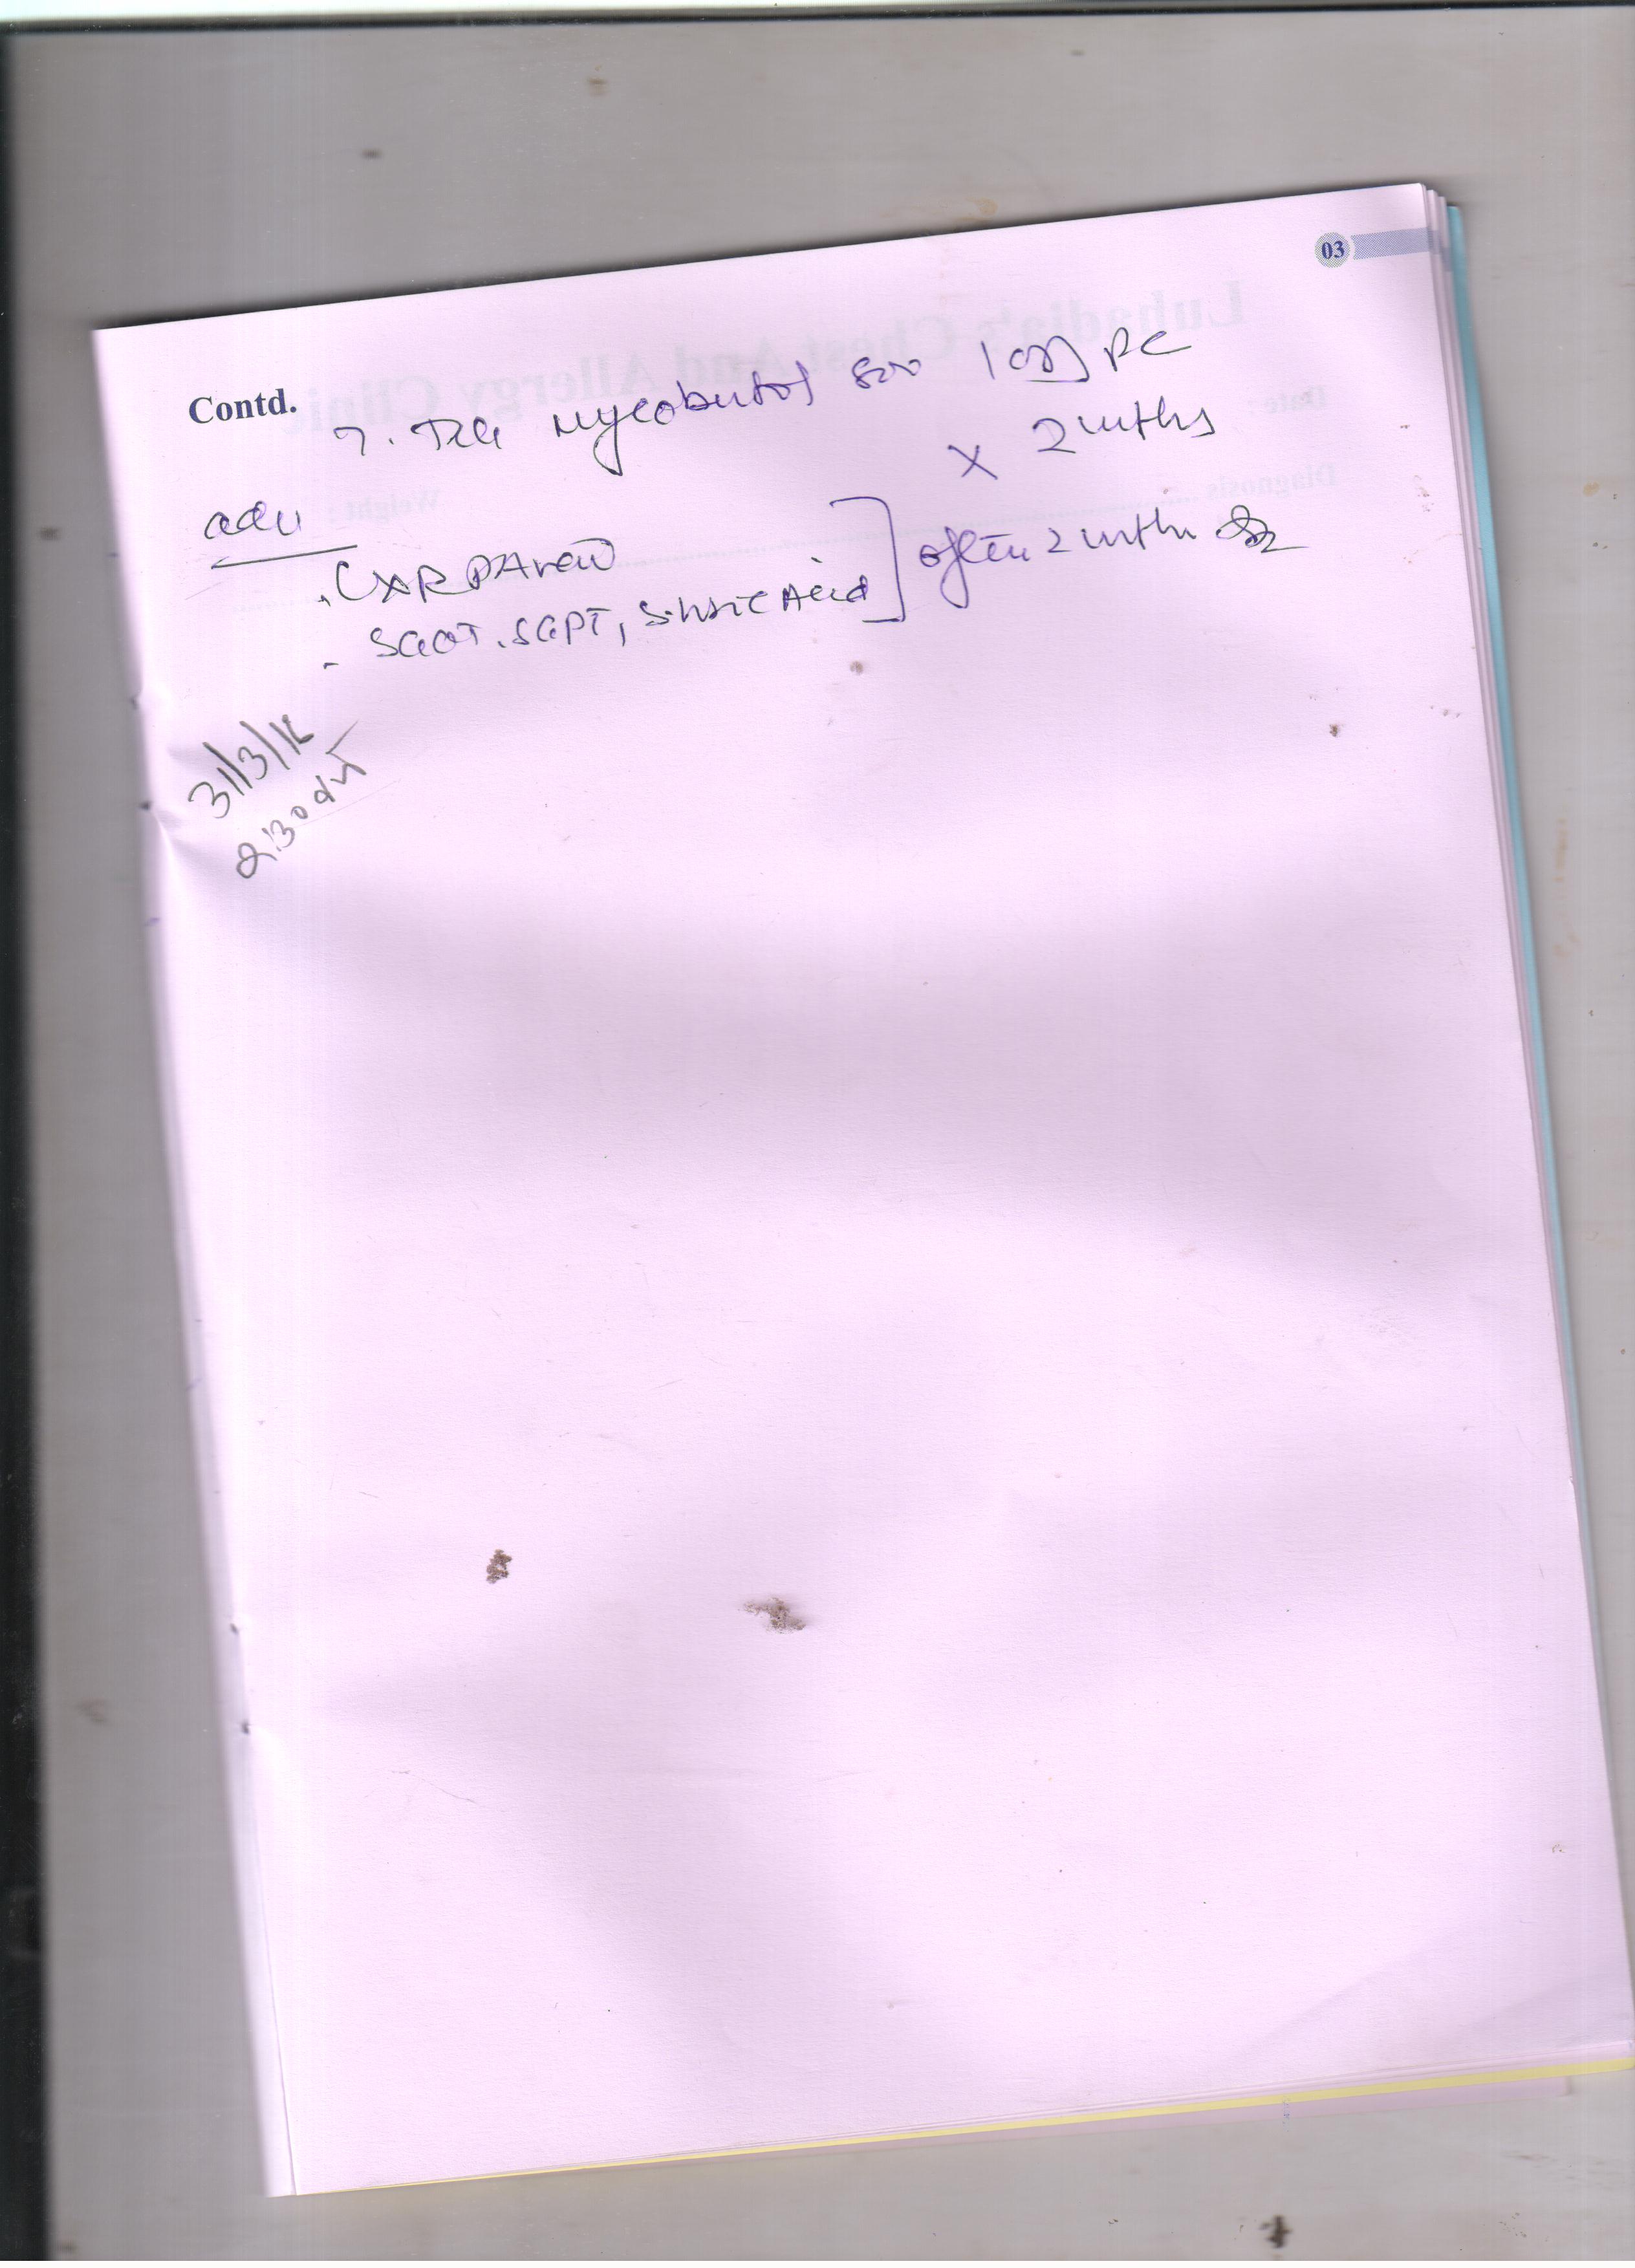 03
Contd.
7. Tab Mycobutol 800 1 OD PC
x 2 mths
adv
. CXR PA view
. SGOT, SGPT, S. Uric Acid ] after 2 mths
31/3/16
2:30